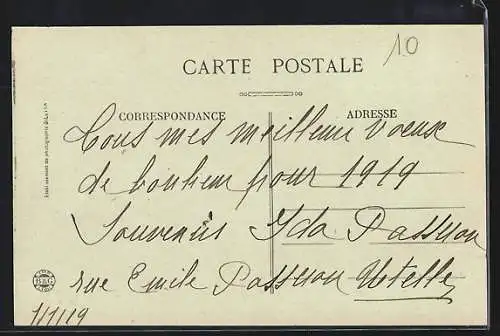 10
CARTE POSTALE
CORRESPONDANCE
ADRESSE
Tous mes meilleurs voeux
de bonheur pour 1919
Souvenirs Ida Passeron
rue Emile Passeron Utelle
1/1/19